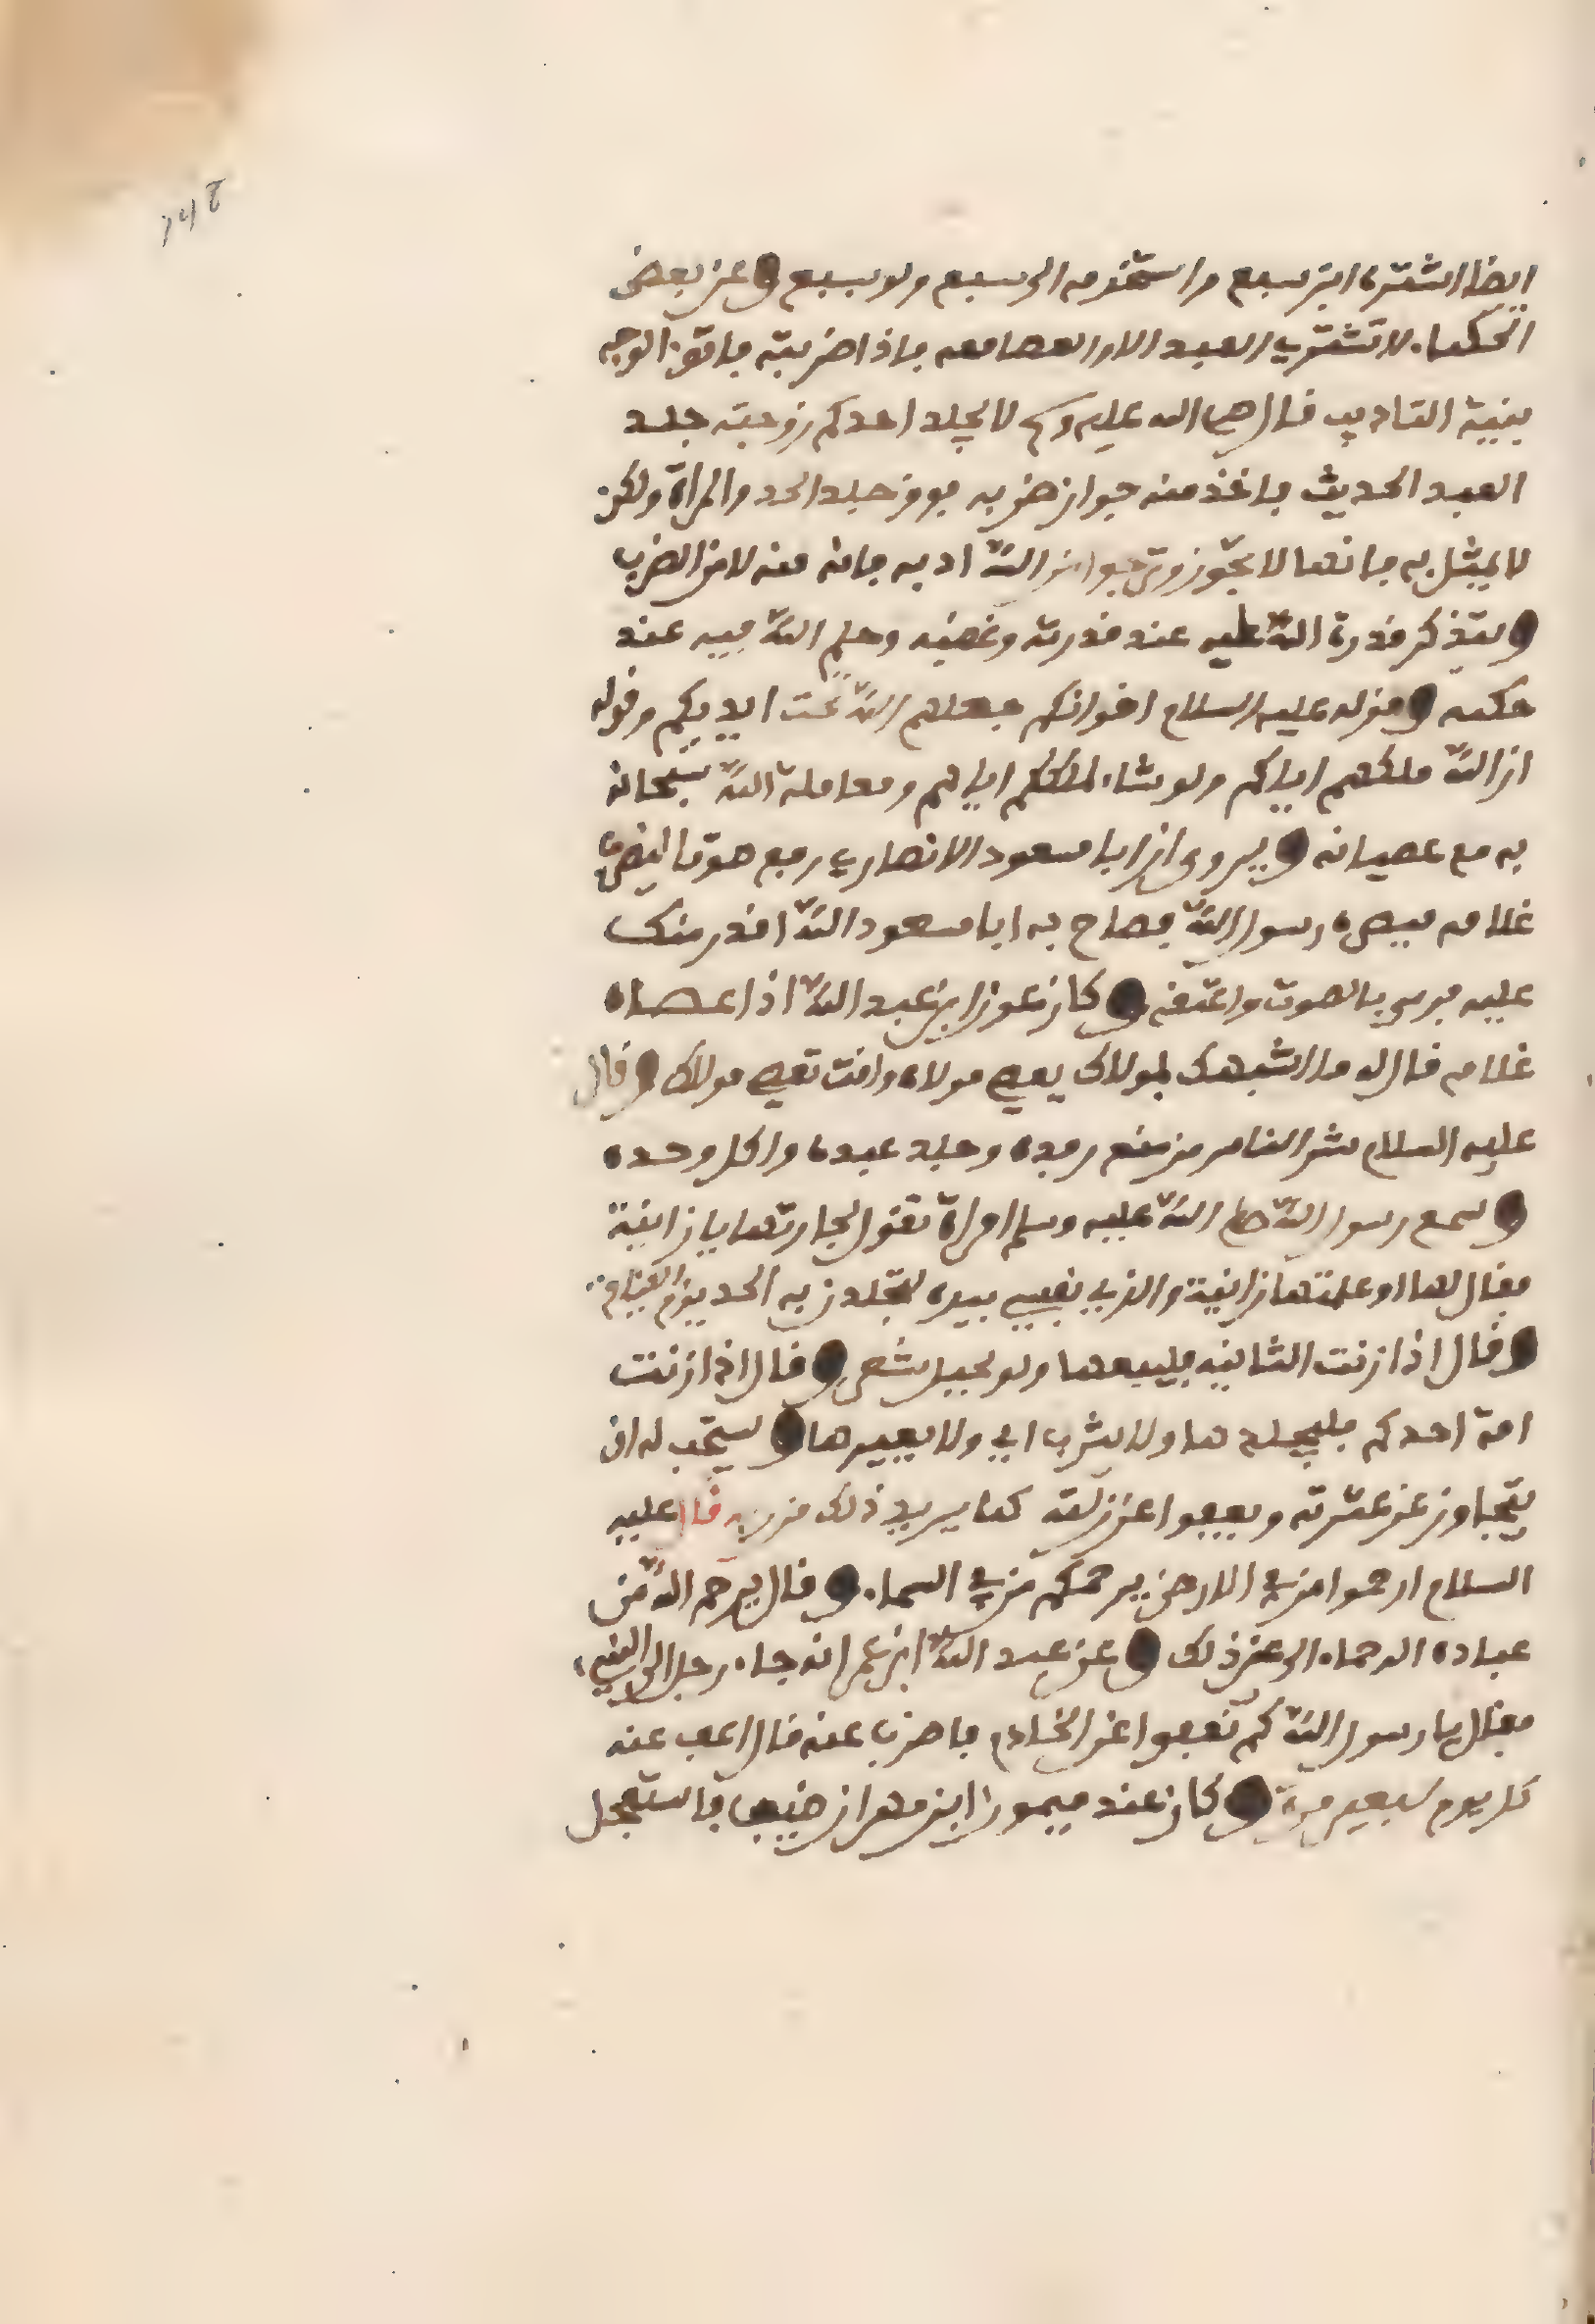 ١٧٤
ايضا اشتره ابن سبع واستخدمه الى سبع ولو بسبع وعن بعض
الحكماء لا تشتري العبد الا والعصا معه فاذا ضربته فاتق الوجه
بنية التاديب قال صلى الله عليه وسلم لا يجلد احدكم زوجته جلد
العبد الحديث فاخذ منه جواز ضربه فوق جلد الحد والمراة ولكن
لا يمثل به فانها لا تجوز من الله ادبه فانه معه لا من الضرب
ويتذكر قدرة الله عليه عند قدرته وغضبه وحلم الله فيه عند
حكمه وقوله عليه السلام اخوانكم جعلهم الله تحت ايديكم وقوله
ان الله ملكهم اياكم ولو شاء لملككم اياهم ومعاملة الله سبحانه
به مع عصيانه ويروى ان ابا مسعود الانصاري رفع صوتا ليضرب
غلامه فبصره رسول الله فصاح به ابا مسعود الله اقدر منك
عليه فرمى بالصوت واعتقه وكان عون ابن عبد الله اذا عصاه
غلام قال له ما اشبهك بمولاك يعصي مولاه وانت تعصي مولاك وقال
عليه السلام شر الناس من منع رفده وجلد عبده واكل وحده
وسمع رسول الله صلى الله عليه وسلم امراة تقول لجاريتها يا زانية
فقال لها او علمتها زانية والذي نفسي بيده لتجلدن به الحد يوم القيامة
وقال اذا زنت الثانية فليبعها ولو بحبل شعر وقال اذا زنت
امة احدكم فليجلدها ولا يثرب اي ولا يعيرها ويستحب له ان
يتجاوز عن عثرته ويعفوا عن زلته كما يريد ذلك من ربه قال عليه
السلام ارحموا من في الارض يرحمكم من في السماء وقال يرحم الله من
عباده الرحماء الى غير ذلك وعن عبد الله ابن عمر انه جاء رجل الى النبيء
فقال يا رسول الله كم نعفوا عن الخادم فاضرب عنه قال اعف عنه
كل يوم سبعين مرة وكان عند ميمون ابن مهران ضيف فاستعجل